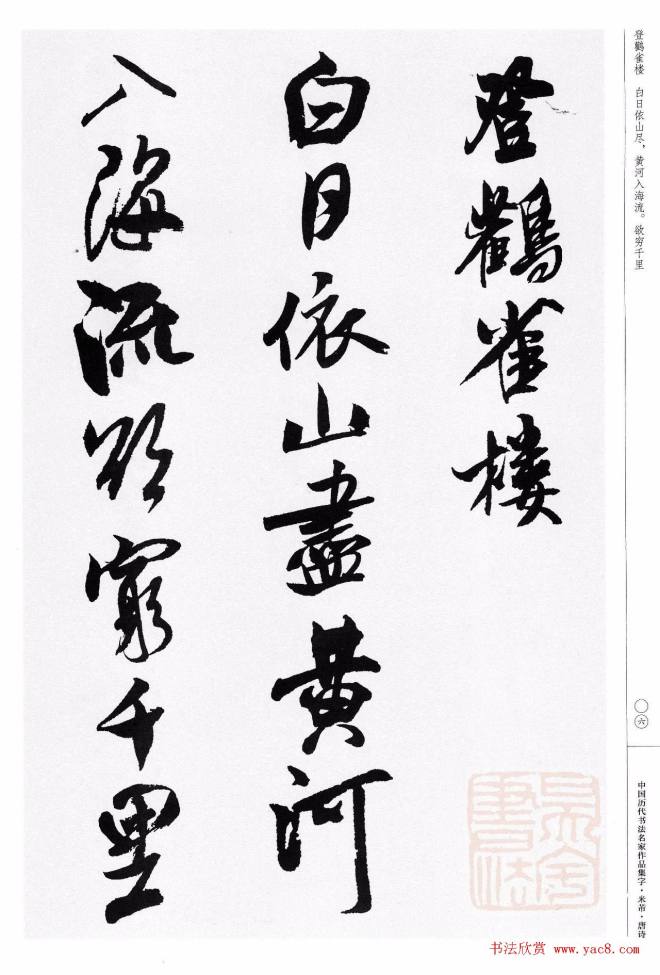 登鹳雀楼 白日依山尽，黄河入海流。欲穷千里
登鸛雀樓
白日依山盡黄河
入海流欲窮千里
〇六
中国历代书法名家作品集字·米芾·唐诗
书法欣赏 www.yac8.com